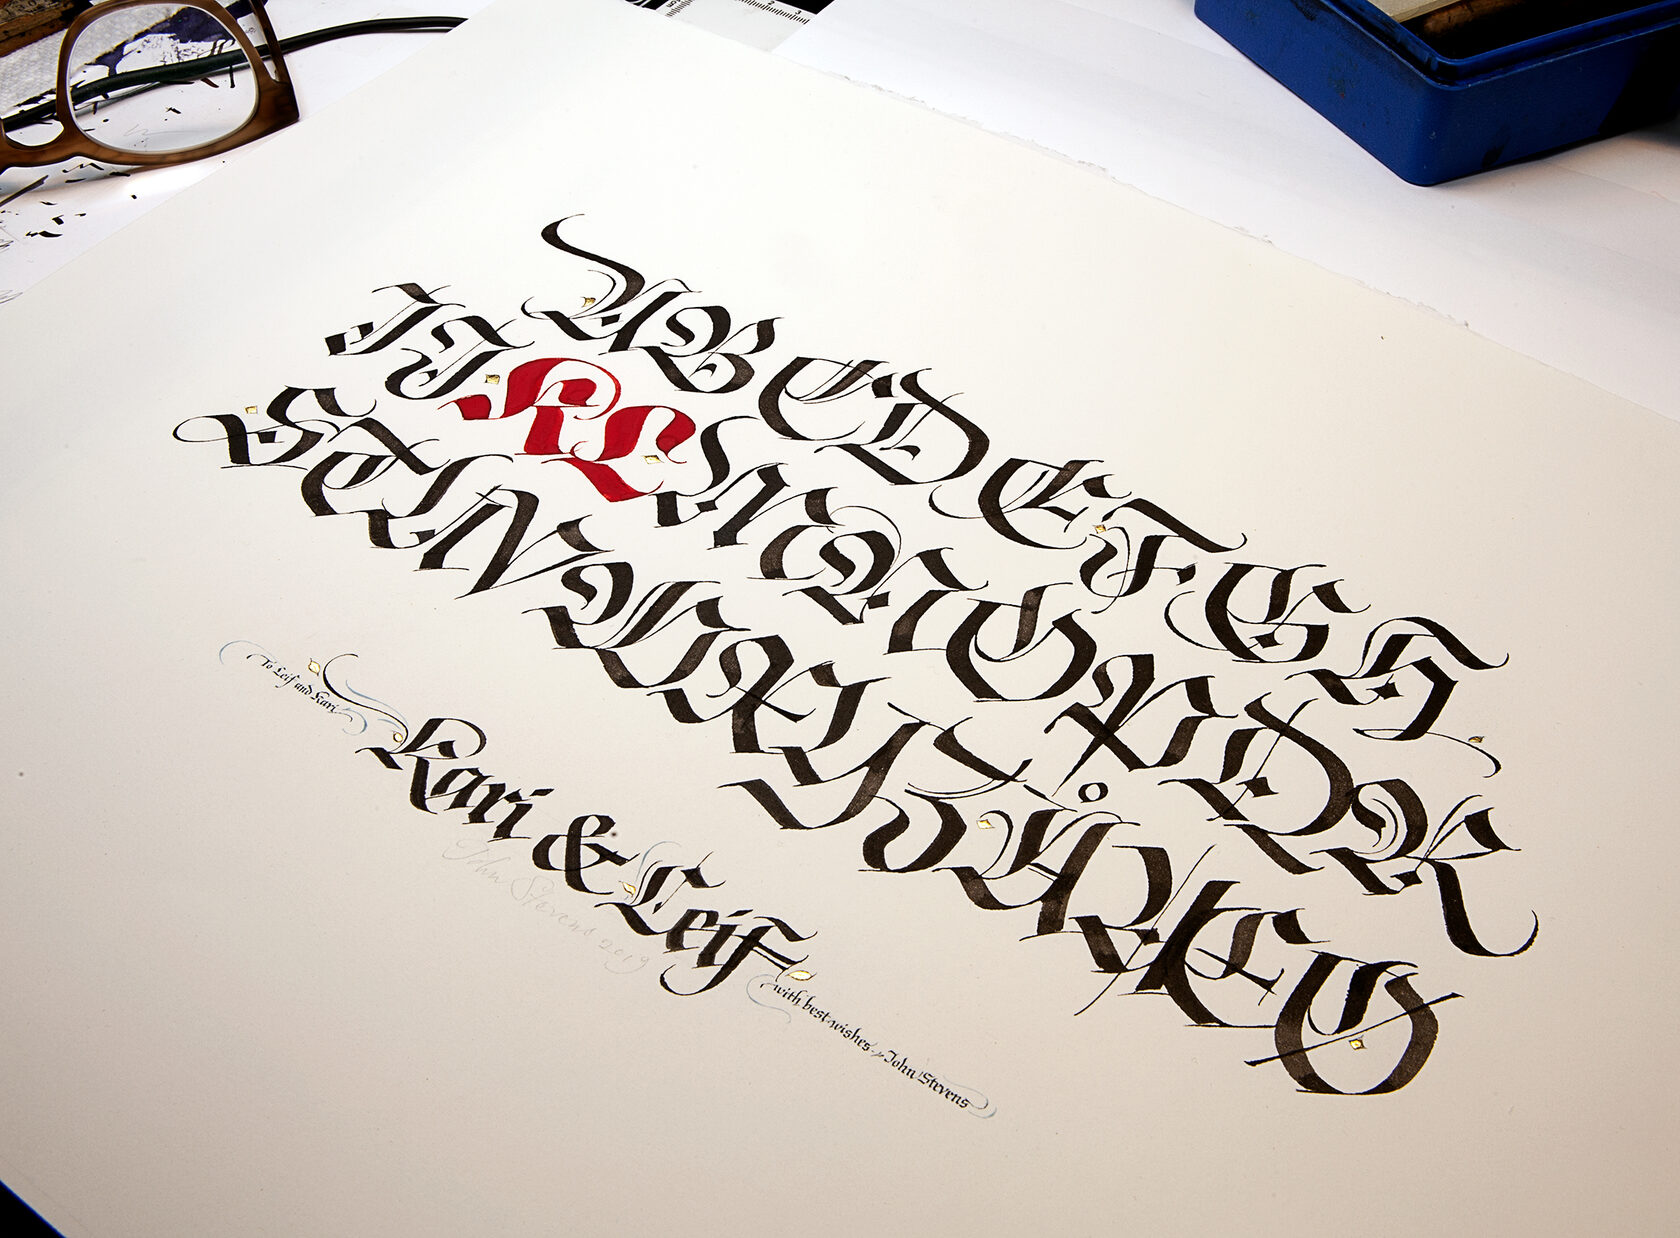 A B C D E F G H
I J K L M N O P Q R
S T U V W X Y Z Å Æ Ø
To Leif and Kari
Kari & Leif
John Stevens 2019
with best wishes ~ John Stevens